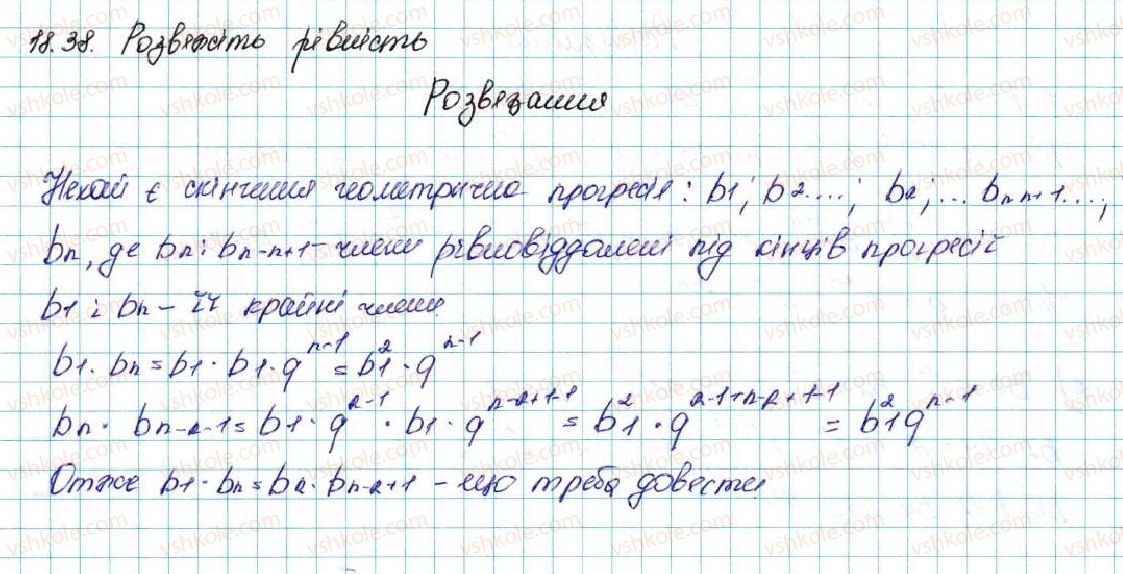 18.38. Розвяжіть рівність
Розвязання
Нехай є скінченна геометрична прогресія: b1; b2....; b2;... bn n+1....;
bn, де bn i bn-n+1 - члени рівновіддалені від кінців прогресії
b1 i bn - її крайні члени.
b1 · bn = b1 · b1 · q^n-1 = b1^2 · q^n-1
bn · bn-2-1 = b1 · q^2-1 · b1 · q^n-2+1-1 = b1^2 · q^2-1+n-2+1-1 = b1^2 q^n-1
Отже b1 · bn = b2 · bn-2+1 - що треба довести